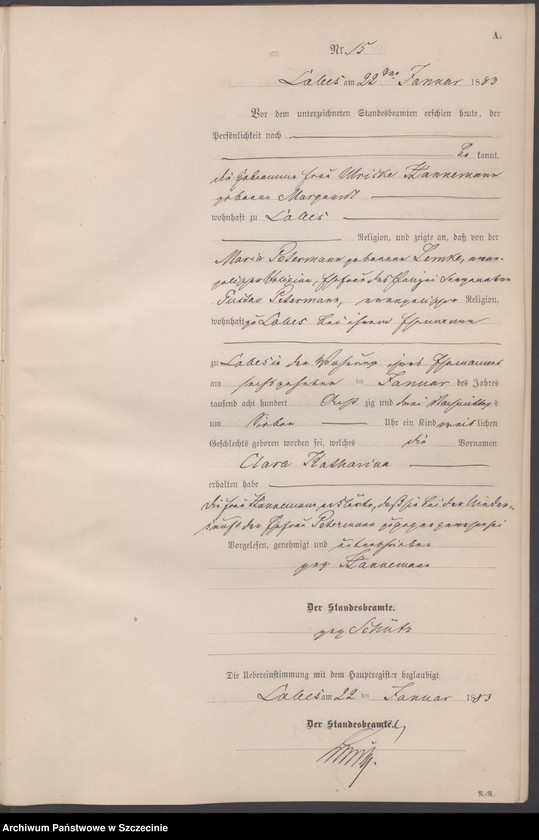 A.
Nr. 15
Labes am 22ten Januar 1883
Vor dem unterzeichneten Standesbeamten erschien heute, der
Persönlichkeit nach
be kannt,
die Hebamme Frau Ulrike Hannemann
geborene Marquardt
wohnhaft zu Labes
Religion, und zeigte an, daß von der
Maria Petermann geborenen Lemke, evan-
gelischer Religion, Ehefrau des Polizei Sergeanten
Gustav Petermann, evangelischer Religion,
wohnhaft zu Labes bei ihrem Ehemanne
zu Labes in der Wohnung ihres Ehemannes
am sechszehnten ten Januar des Jahres
tausend acht hundert Acht zig und drei Nachmittags
um Sieben Uhr ein Kind weiblichen
Geschlechts geboren worden sei, welches die Vornamen
Clara Katharina
erhalten habe
die Frau Hannemann erklärte, daß sie bei der Nieder-
kunft der Ehefrau Petermann zugegen gewesen sei
Vorgelesen, genehmigt und unterschrieben
gez Hannemann
Der Standesbeamte.
gez Schütz
Die Uebereinstimmung mit dem Hauptregister beglaubigt
Labes am 22 ten Januar 1883
Der Standesbeamte.
R.-R.
Archiwum Państwowe w Szczecinie